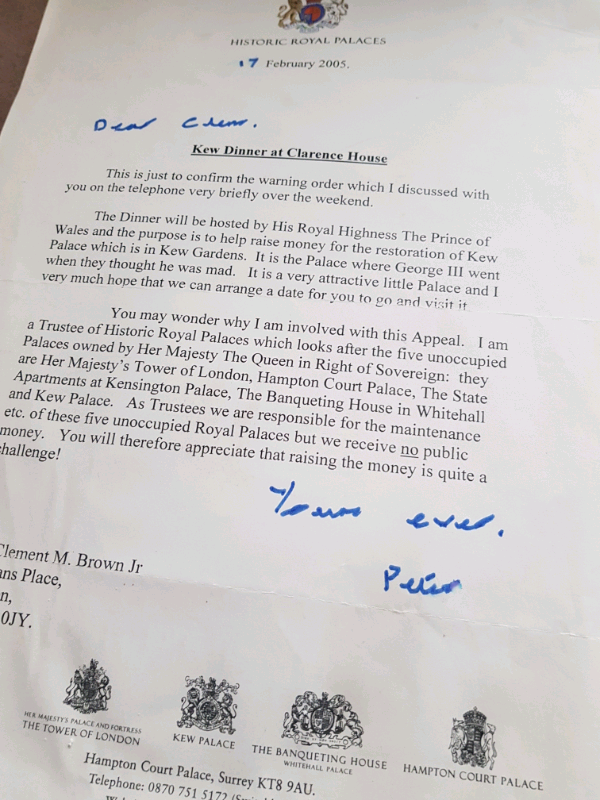 HISTORIC ROYAL PALACES
17 February 2005.
Dear Clem.
Kew Dinner at Clarence House
This is just to confirm the warning order which I discussed with
you on the telephone very briefly over the weekend.
The Dinner will be hosted by His Royal Highness The Prince of
Wales and the purpose is to help raise money for the restoration of Kew
Palace which is in Kew Gardens. It is the Palace where George III went
when they thought he was mad. It is a very attractive little Palace and I
very much hope that we can arrange a date for you to go and visit it.
You may wonder why I am involved with this Appeal. I am
a Trustee of Historic Royal Palaces which looks after the five unoccupied
Palaces owned by Her Majesty The Queen in Right of Sovereign: they
are Her Majesty's Tower of London, Hampton Court Palace, The State
Apartments at Kensington Palace, The Banqueting House in Whitehall
and Kew Palace. As Trustees we are responsible for the maintenance
etc. of these five unoccupied Royal Palaces but we receive no public
money. You will therefore appreciate that raising the money is quite a
challenge!
Yours ever.
Peter
Clement M. Brown Jr
ans Place,
n,
0JY.
HER MAJESTY'S PALACE AND FORTRESS
THE TOWER OF LONDON
KEW PALACE
THE BANQUETING HOUSE
WHITEHALL PALACE
HAMPTON COURT PALACE
Hampton Court Palace, Surrey KT8 9AU.
Telephone: 0870 751 5172